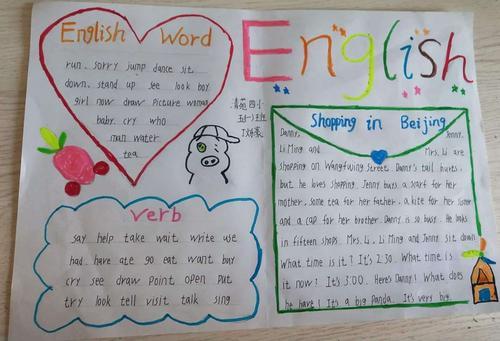 English Word
run. sorry jump dance sit.
down. stand up see look boy
girl now draw picture woman
baby cry who
man water
tea
English
Shopping in Beijing
Danny, Jenny,
Li Ming and Mrs. Li are
shopping on Wangfujing Street. Danny's tail hurts,
but he loves shopping. Jenny buys a scarf for her
mother, some tea for her father, a kite for her sister
and a cap for her brother. Danny is so busy. He looks
in fifteen shops. Mrs. Li, Li Ming and Jenny sit down.
What time is it? It's 2:30. What time is
it now? It's 3:00. Here's Danny! What does
he have? It's a big panda. It's very big.
verb
say help take wait write use
had. have ate go eat want buy
cry see draw point open put
try look tell visit talk sing